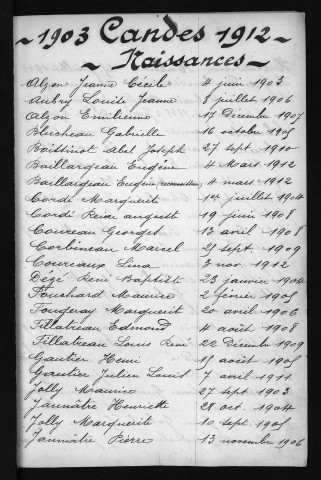 1903 Candes 1912
Naissances
Alzon Jeanne Cécile 4 juin 1903
Aubry Louise Jeanne 8 juillet 1906
Alzon Emilienne 17 Décembre 1907
Blucheau Gabrielle 16 octobre 1905
Boittinot Abel Joseph 27 sept 1910
Baillargeau Eugène 4 Mars 1912
Baillargeau Eugène 4 mars 1912
Cordé Marguerit 1er juillet 1904
Cordé Reine august 19 juin 1908
Coureau Georges 13 avril 1908
Corbineau Marcel 21 sept 1909
Coureaux Lina 3 nov. 1912
Dézé René Baptist 23 janvier 1904
Fouchard Maurice 2 février 1905
Fougeray Marguerit 20 avril 1906
Fillatreau Edmond 4 août 1908
Fillatreau Louis René 22 Décembre 1909
Gautier Henri 15 août 1905
Gautier Julien Louis 7 avril 1911
Jolly Maurice 27 sept 1903
Jannâtre Henriette 28 oct 1904
Jolly Marguerite 10 sept 1905
Jannâtre Pierre 13 novembre 1906